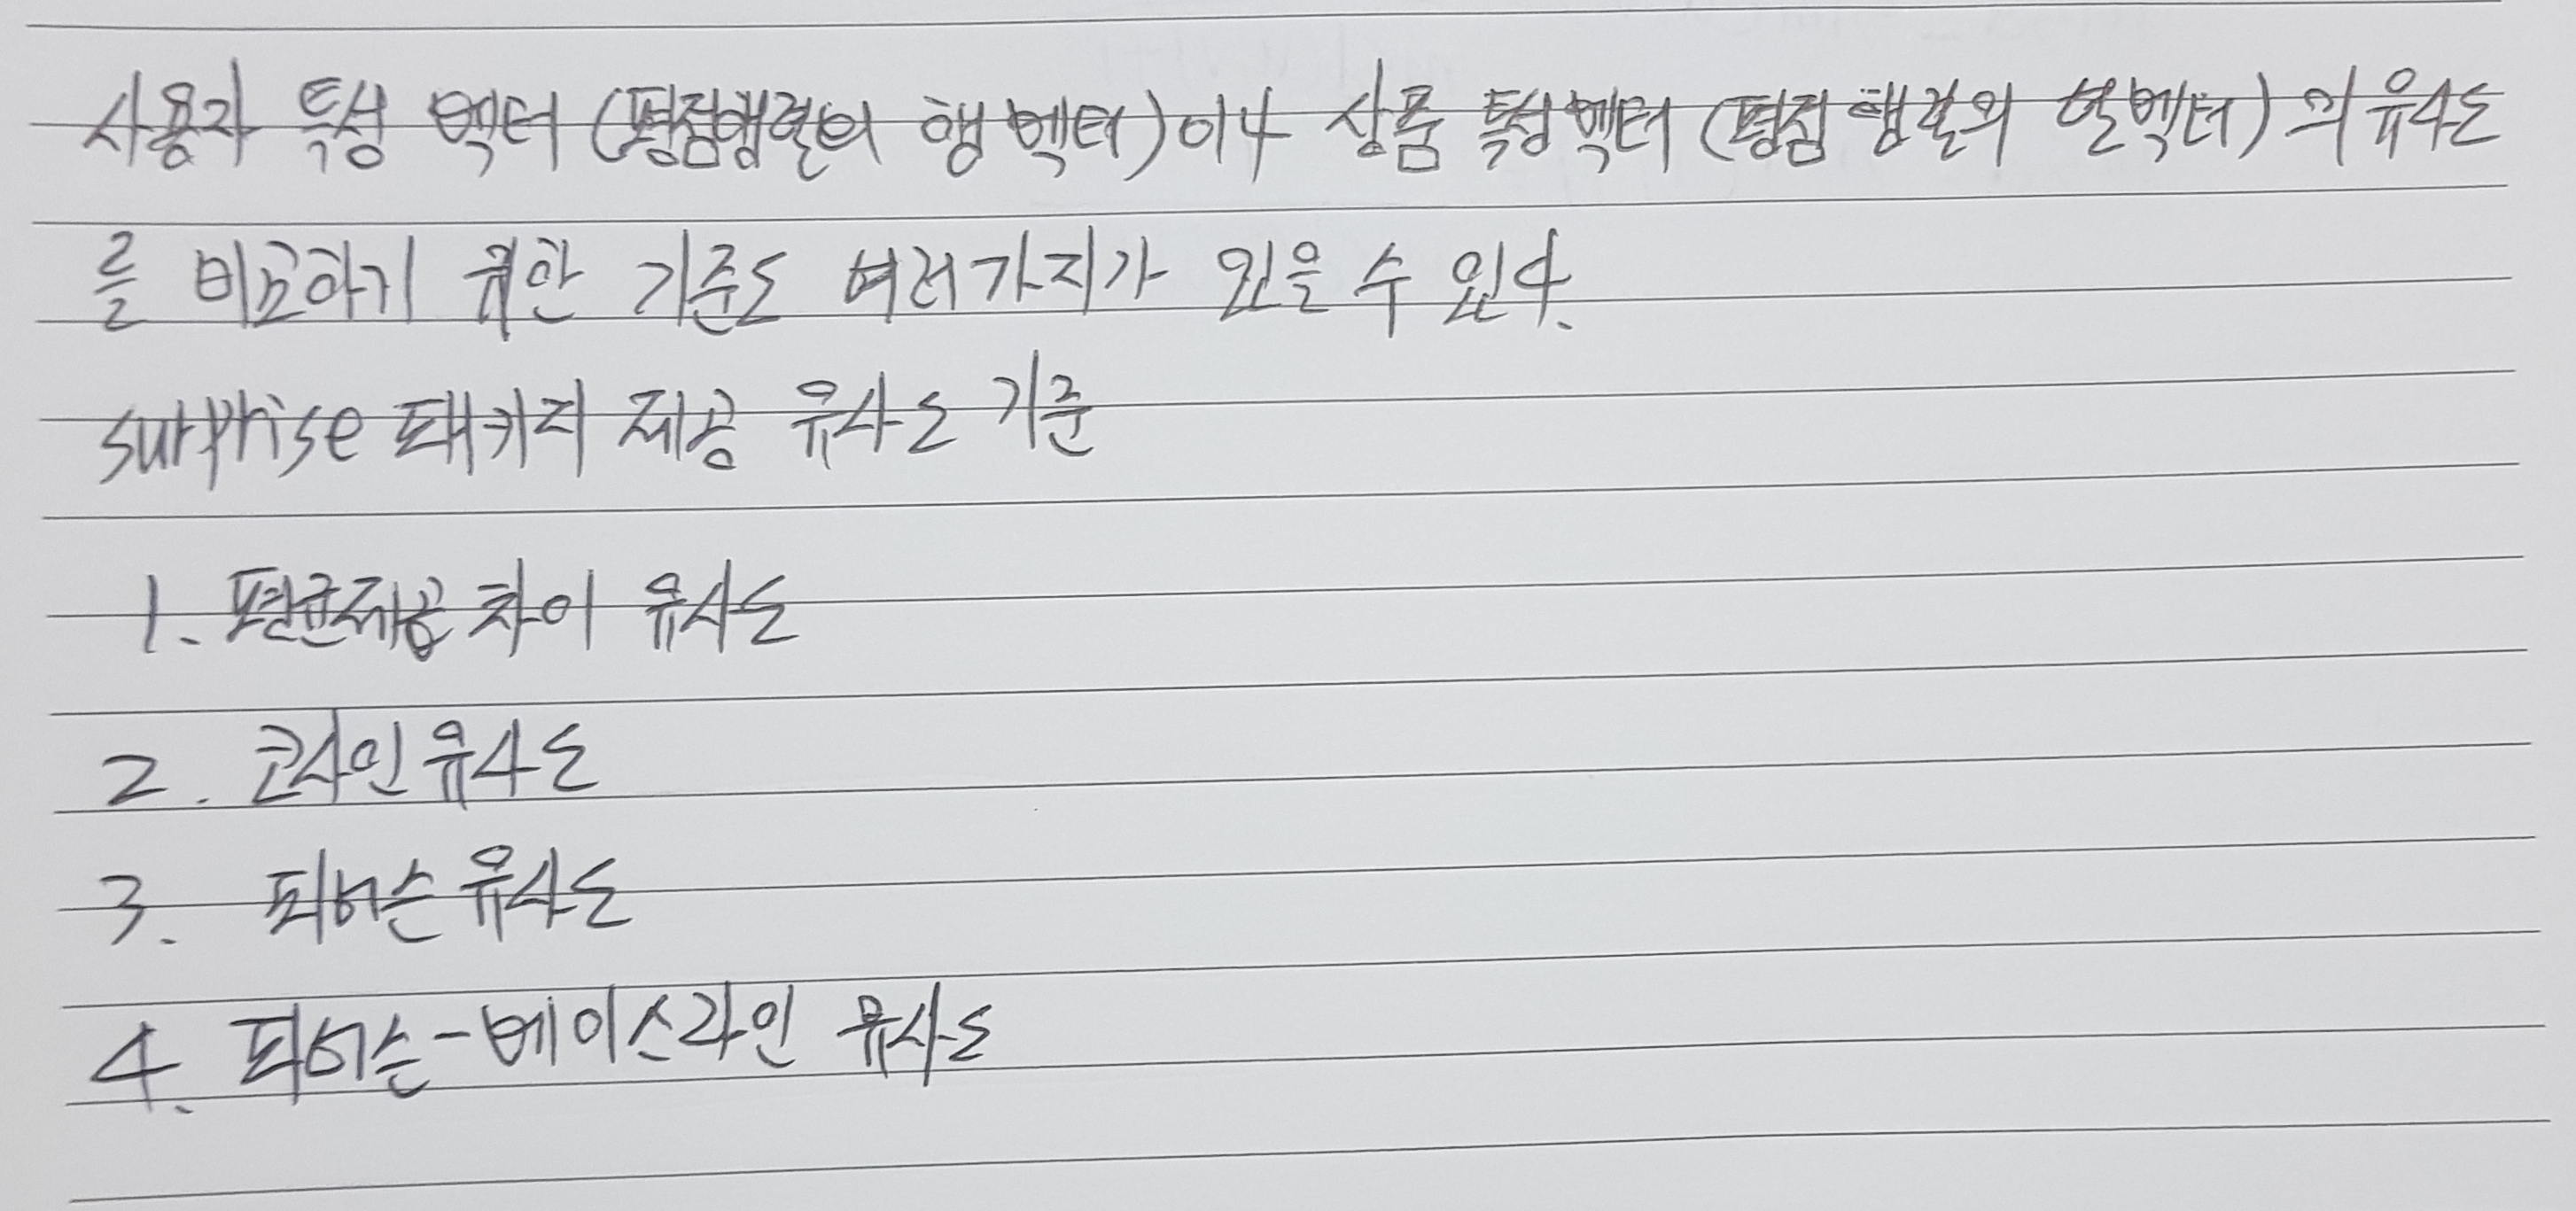 사용자 특성 벡터 (평점행렬의 행 벡터)이나 상품 특성벡터 (평점 행렬의 열벡터)의 유사도
를 비교하기 위한 기준도 여러가지가 있을 수 있다.
surprise 패키지 제공 유사도 기준
1. 평균제곱 차이 유사도
2. 코사인 유사도
3. 피어슨 유사도
4. 피어슨-베이스라인 유사도